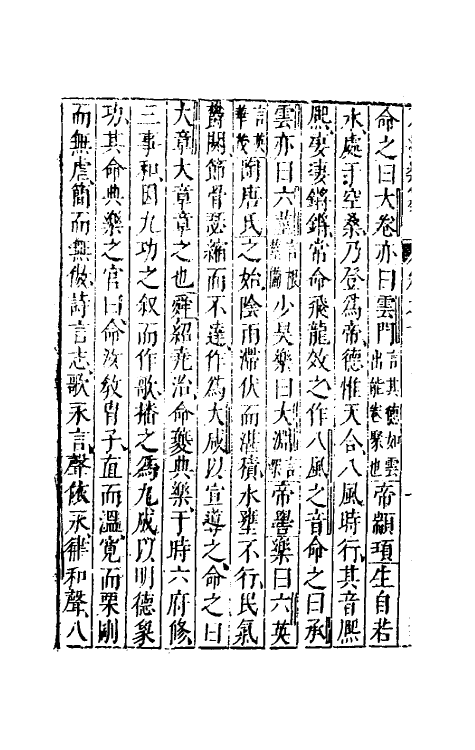 命之曰大卷亦曰雲門言其德如雲出能卷聚也帝顓頊生自若
水處于空桑乃登爲帝德惟天合八風時行其音熙
熙凄凄鏘鏘常命飛龍效之作八風之音命之曰承
雲亦曰六莖言根莖少昊樂曰大淵言帝嚳樂曰六英
言英華茂陶唐氏之始陰雨滯伏而湛積水壅不行民氣
鬱閼節骨瑟縮而不達作爲大咸以宣導之命之曰
大章大章章之也舜紹堯治命夔典樂于時六府修
三事和因九功之叙而作歌播之爲九成以明德象
功其命典樂之官曰命汝敎胄子直而溫寬而栗剛
而無虐簡而無傲詩言志歌永言聲依永律和聲八